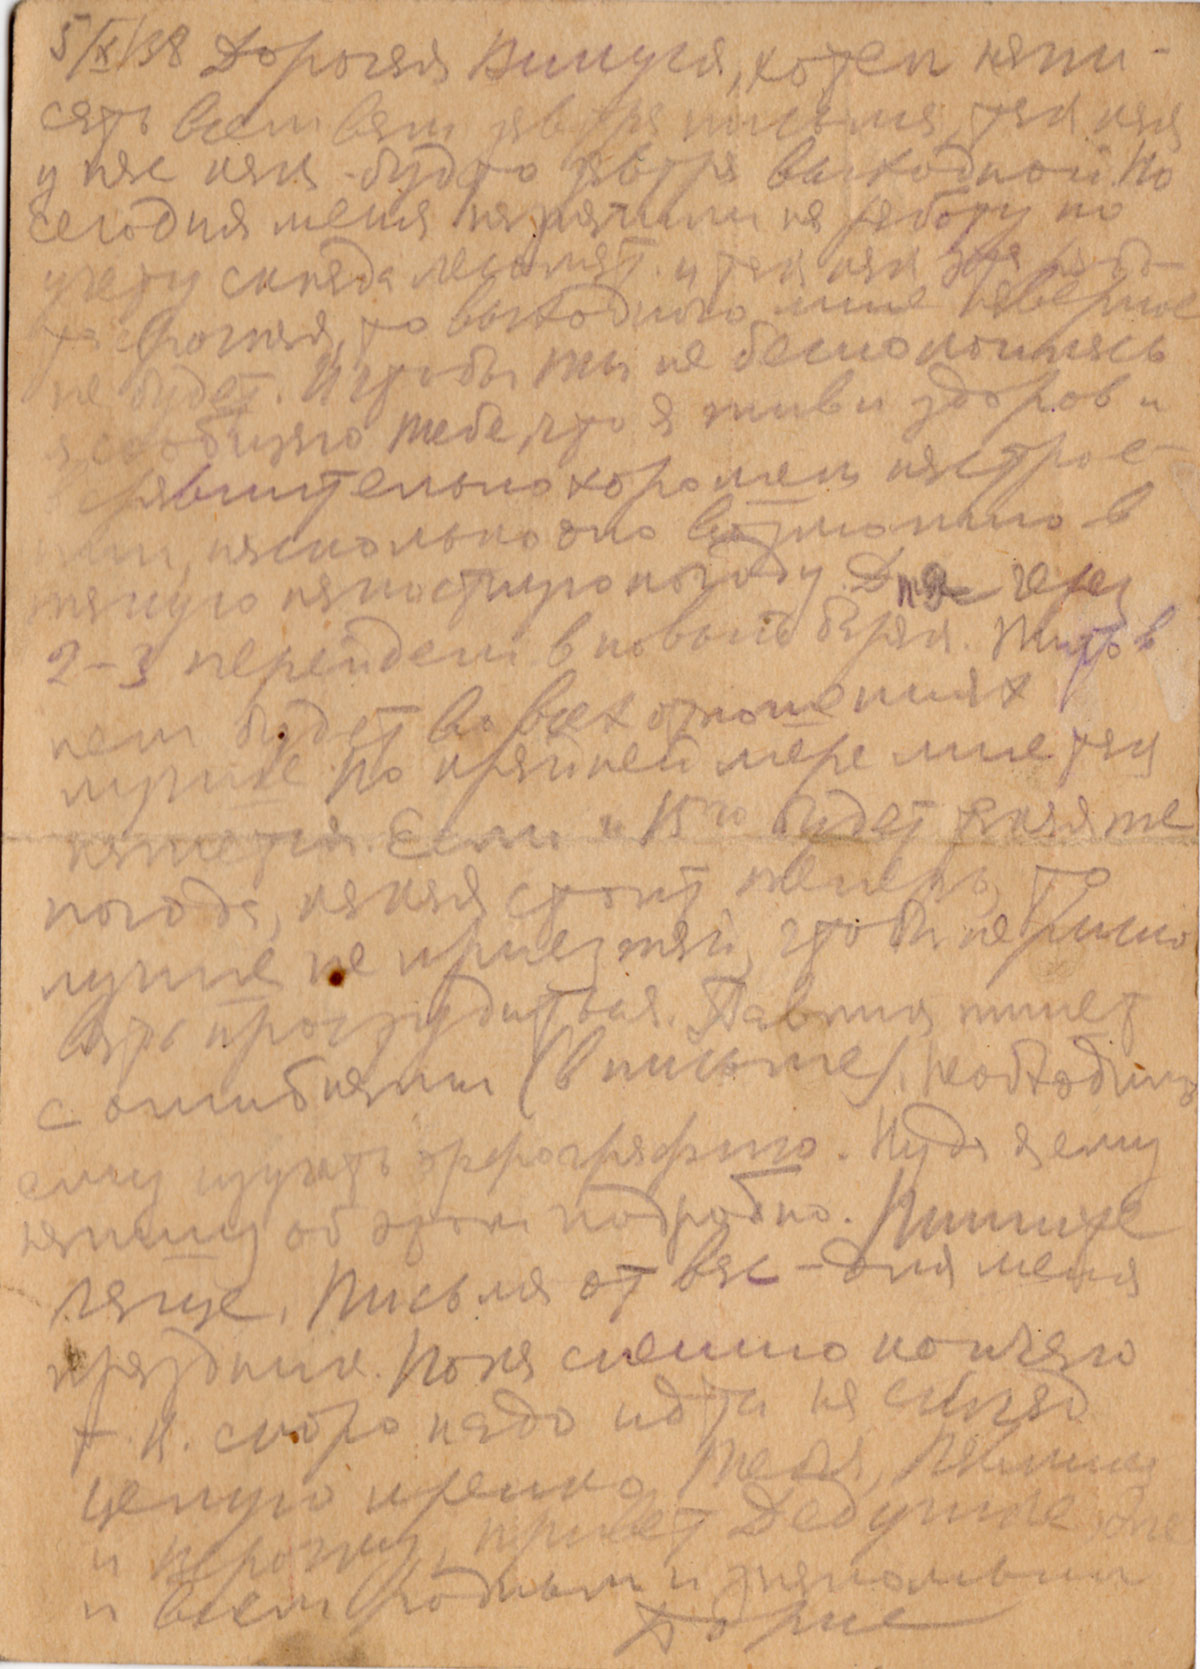 5/X/38 Дорогая Вимуся, хотел напи-
сать всем вам завтра письма, так как
у нас как-будто завтра выходной. Но
сегодня меня на работу по
учету склада и так как эта рабо-
та срочная, то выходного мне наверное
не будет. И чтобы ты не беспокоилась
я сообщаю тебе, что я жив и здоров и
в сравнительно хорошем настрое-
нии, насколько оно возможно в
такую ненастную погоду. Дня через
2-3 перейдем в новый барак. Жить в
нем будет во всех отношениях
лучше. По крайней мере мне так
кажется. Если к 15му будет такая же
погода, какая стоит теперь, то
лучше не приезжай, чтобы не риско
вать простудиться. Павлик пишет
с ошибками (в письме). Необходимо
ему изучать орфографию. Куда я ему
напишу об этом подробно. Пишите
чаще. Письма от вас - для меня
праздник. Пока спешно кончаю
т. к. скоро надо идти на склад
целую крепко тебя,
и привет Дедушке
и всем родным и знакомым
Борис